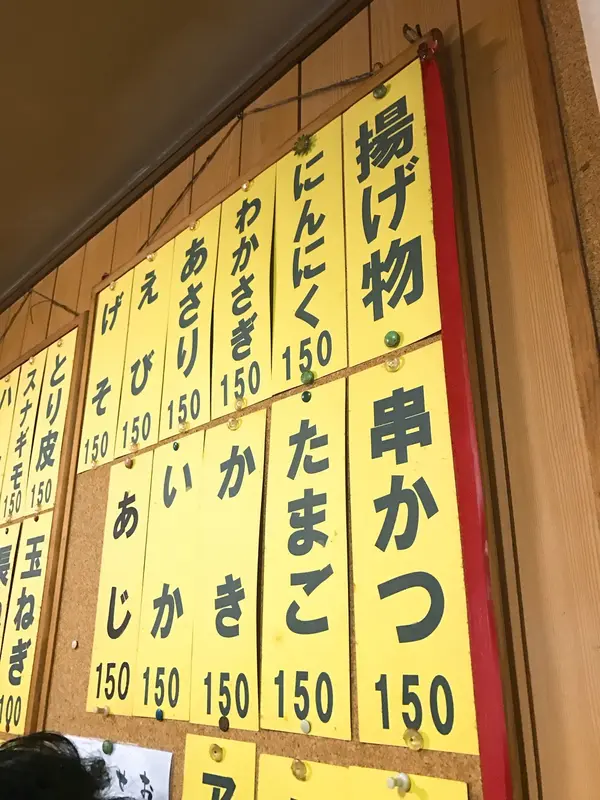 揚げ物
にんにく 150
わかさぎ 150
あさり 150
えび 150
げそ 150
串かつ 150
たまご 150
かき 150
いか 150
あじ 150
とり皮 150
スナギモ 150
玉ねぎ 100